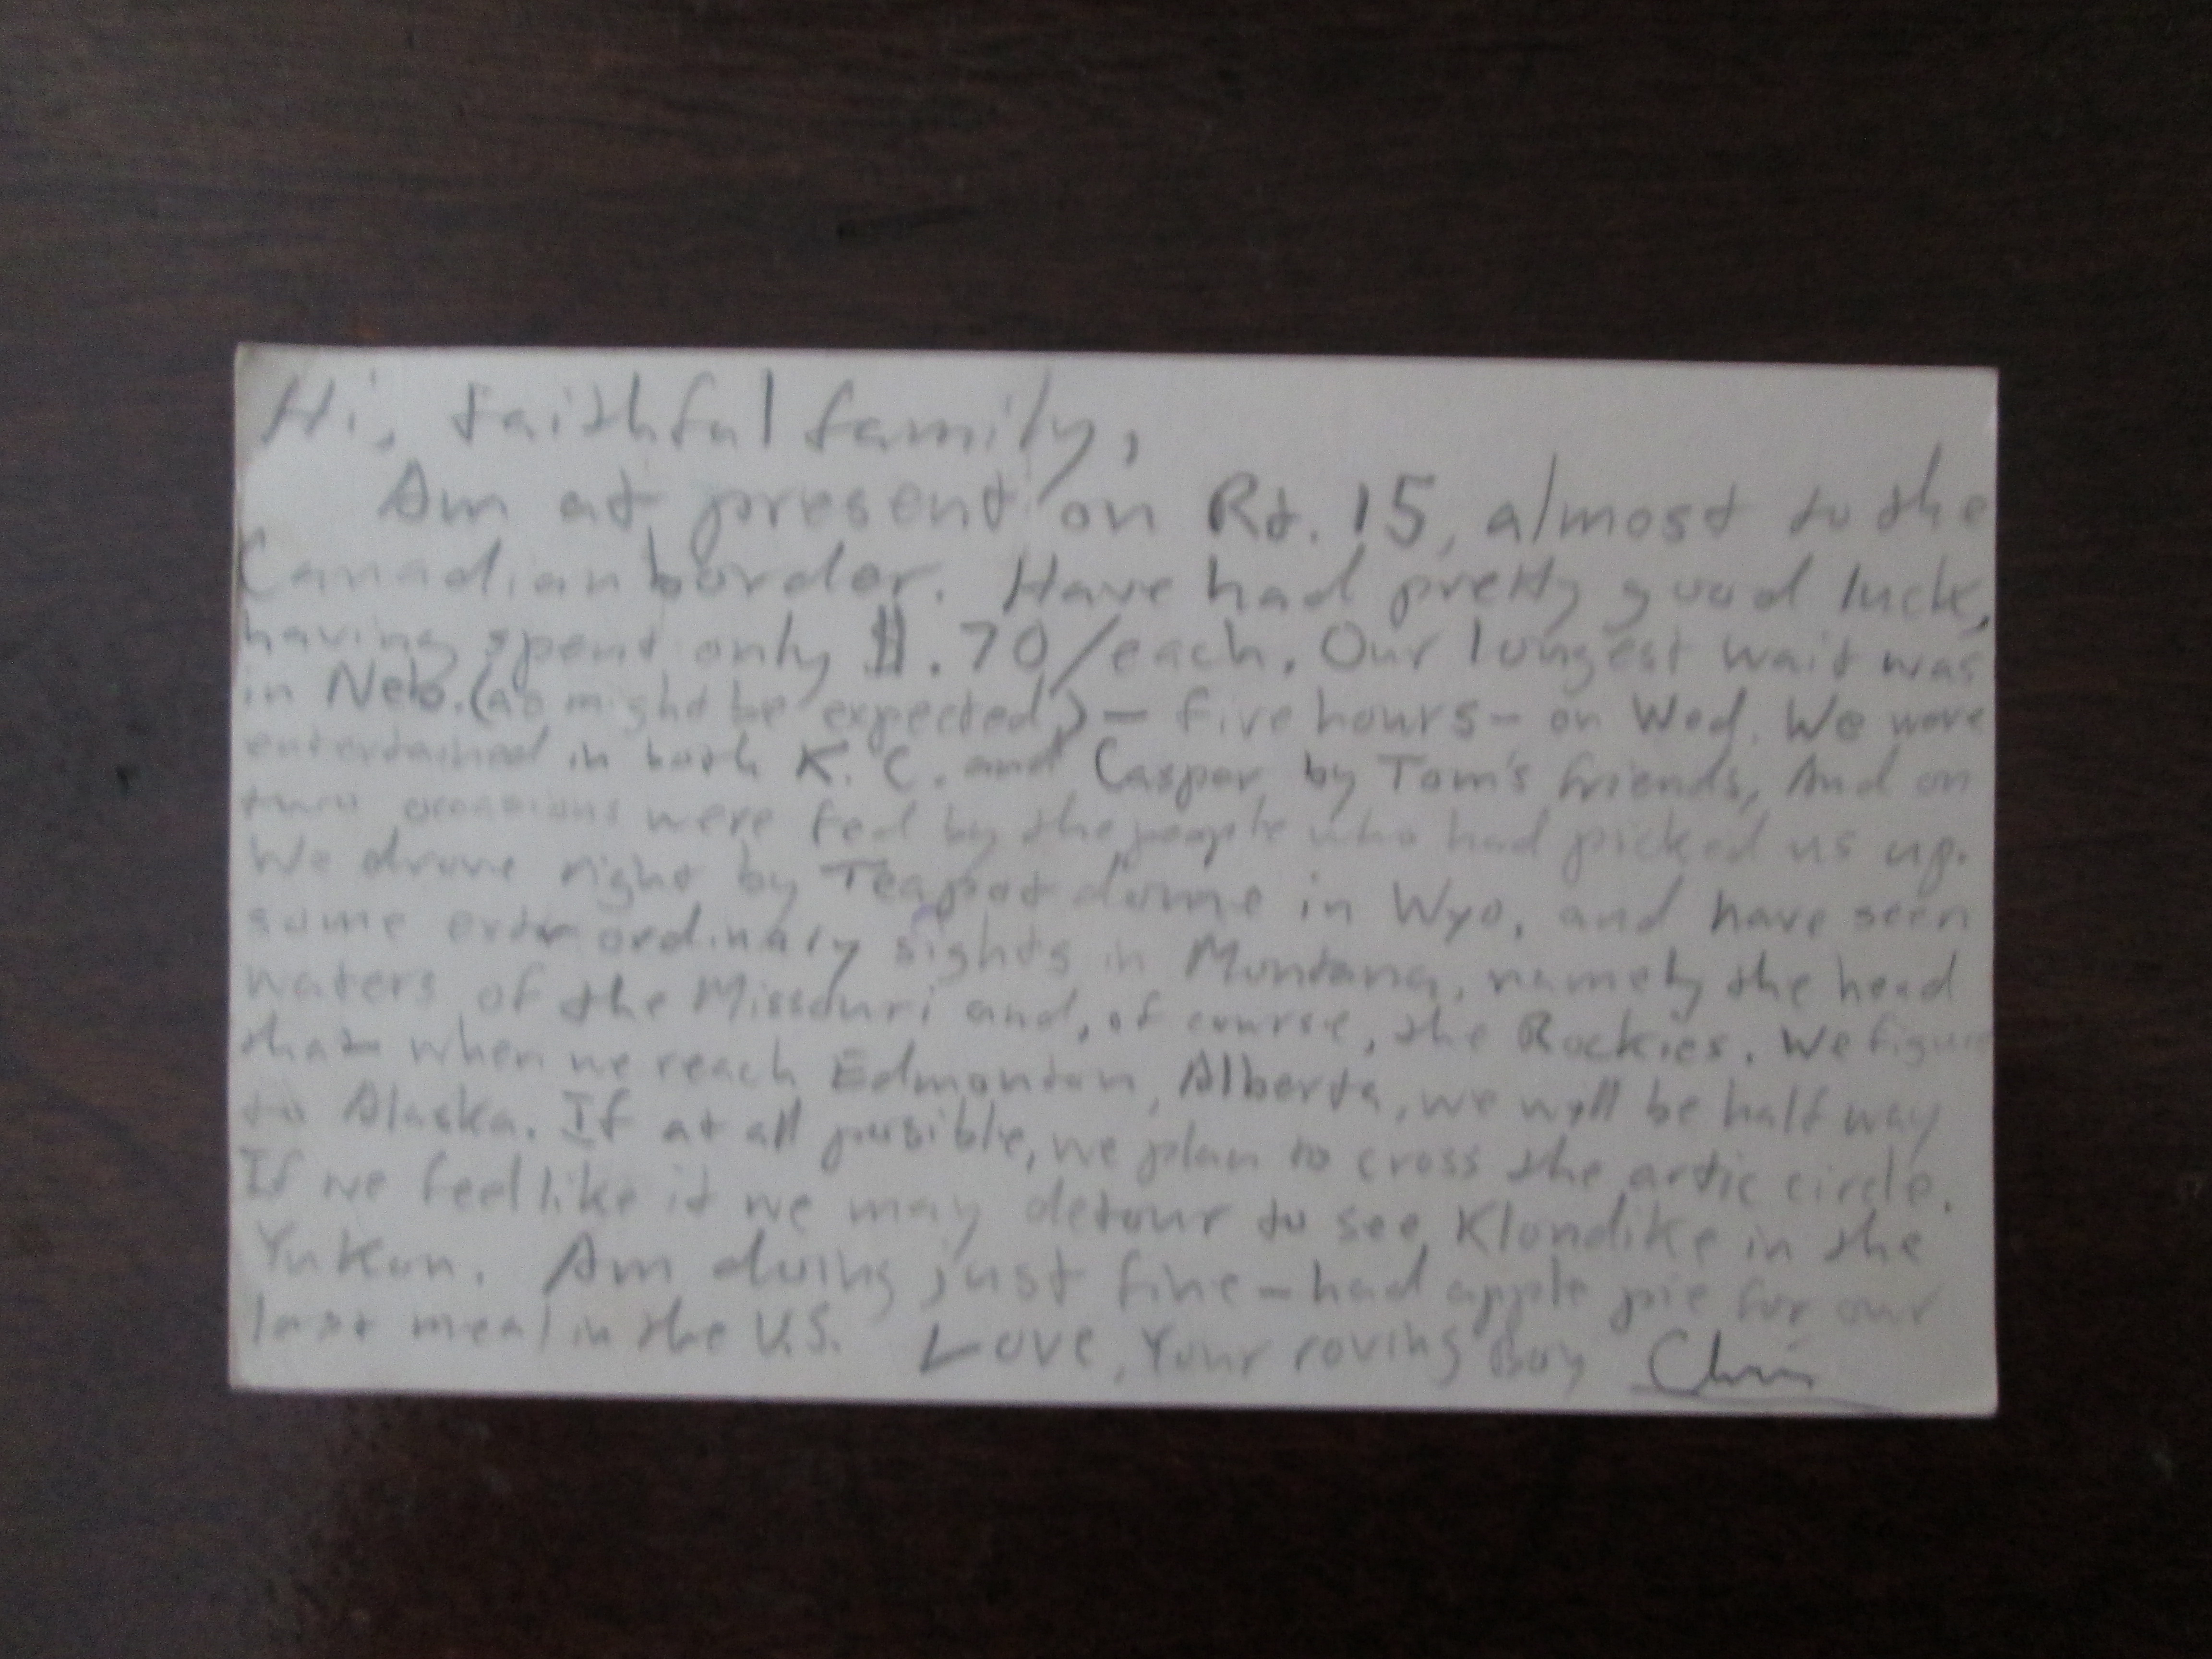 Hi, faithful family,
Am at present on Rt. 15, almost to the
Canadian border. Have had pretty good luck,
having spent only $.70/each. Our longest wait was
in Neb. (as might be expected) - five hours - on Wed. We were
entertained in both K.C. and Casper by Tom's friends, And on
two occasions were fed by the people who had picked us up.
We drove right by Teapot dome in Wyo. and have seen
some extraordinary sights in Montana, namely the head
waters of the Missouri and, of course, the Rockies. We figure
that when we reach Edmonton, Alberta, we will be half way
to Alaska. If at all possible, we plan to cross the artic circle.
If we feel like it we may detour to see Klondike in the
Yukon. Am doing just fine - had apple pie for our
last meal in the U.S. Love, Your roving boy Chris